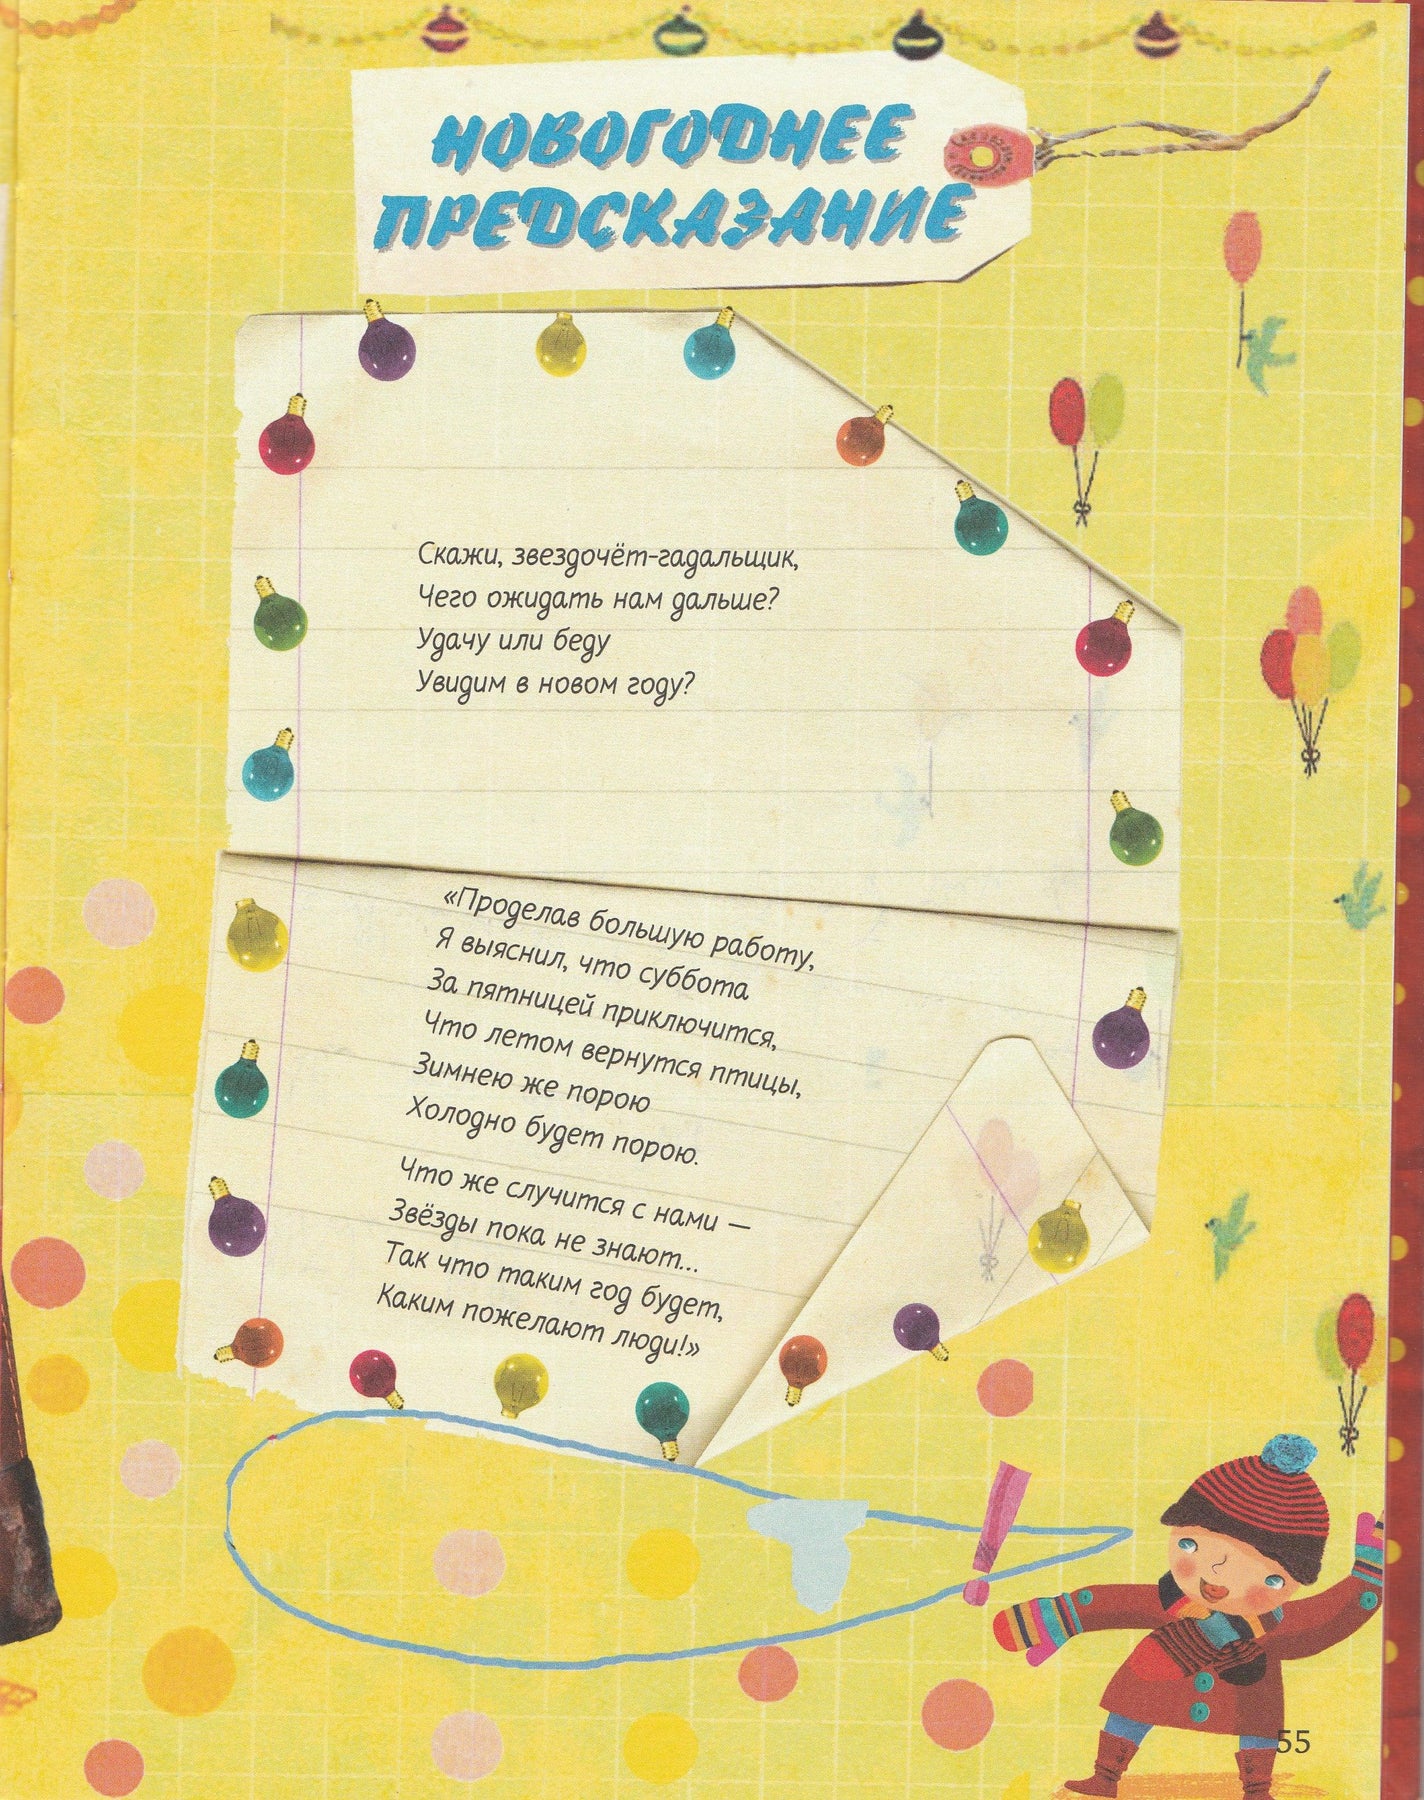 НОВОГОДНЕЕ
ПРЕДСКАЗАНИЕ
Скажи, звездочёт-гадальщик,
Чего ожидать нам дальше?
Удачу или беду
Увидим в новом году?
«Проделав большую работу,
Я выяснил, что суббота
За пятницей приключится,
Что летом вернутся птицы,
Зимнею же порою
Холодно будет порою.
Что же случится с нами —
Звёзды пока не знают...
Так что таким год будет,
Каким пожелают люди!»
!
55